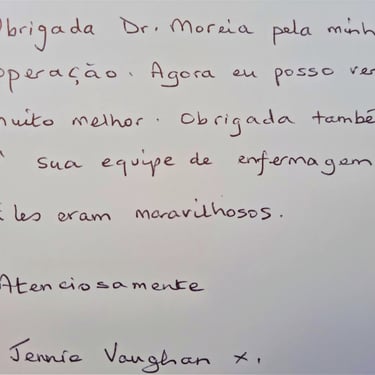 Obrigada Dr. Moreia pela minh
operação. Agora eu posso ver
muito melhor. Obrigada també
à sua equipe de enfermagem
Eles eram maravilhosos.
Atenciosamente
Jennie Vaughan x.